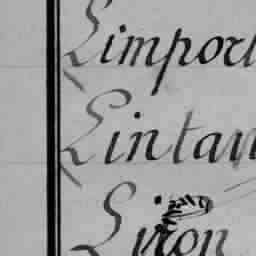 Limport
Lintan
Liron